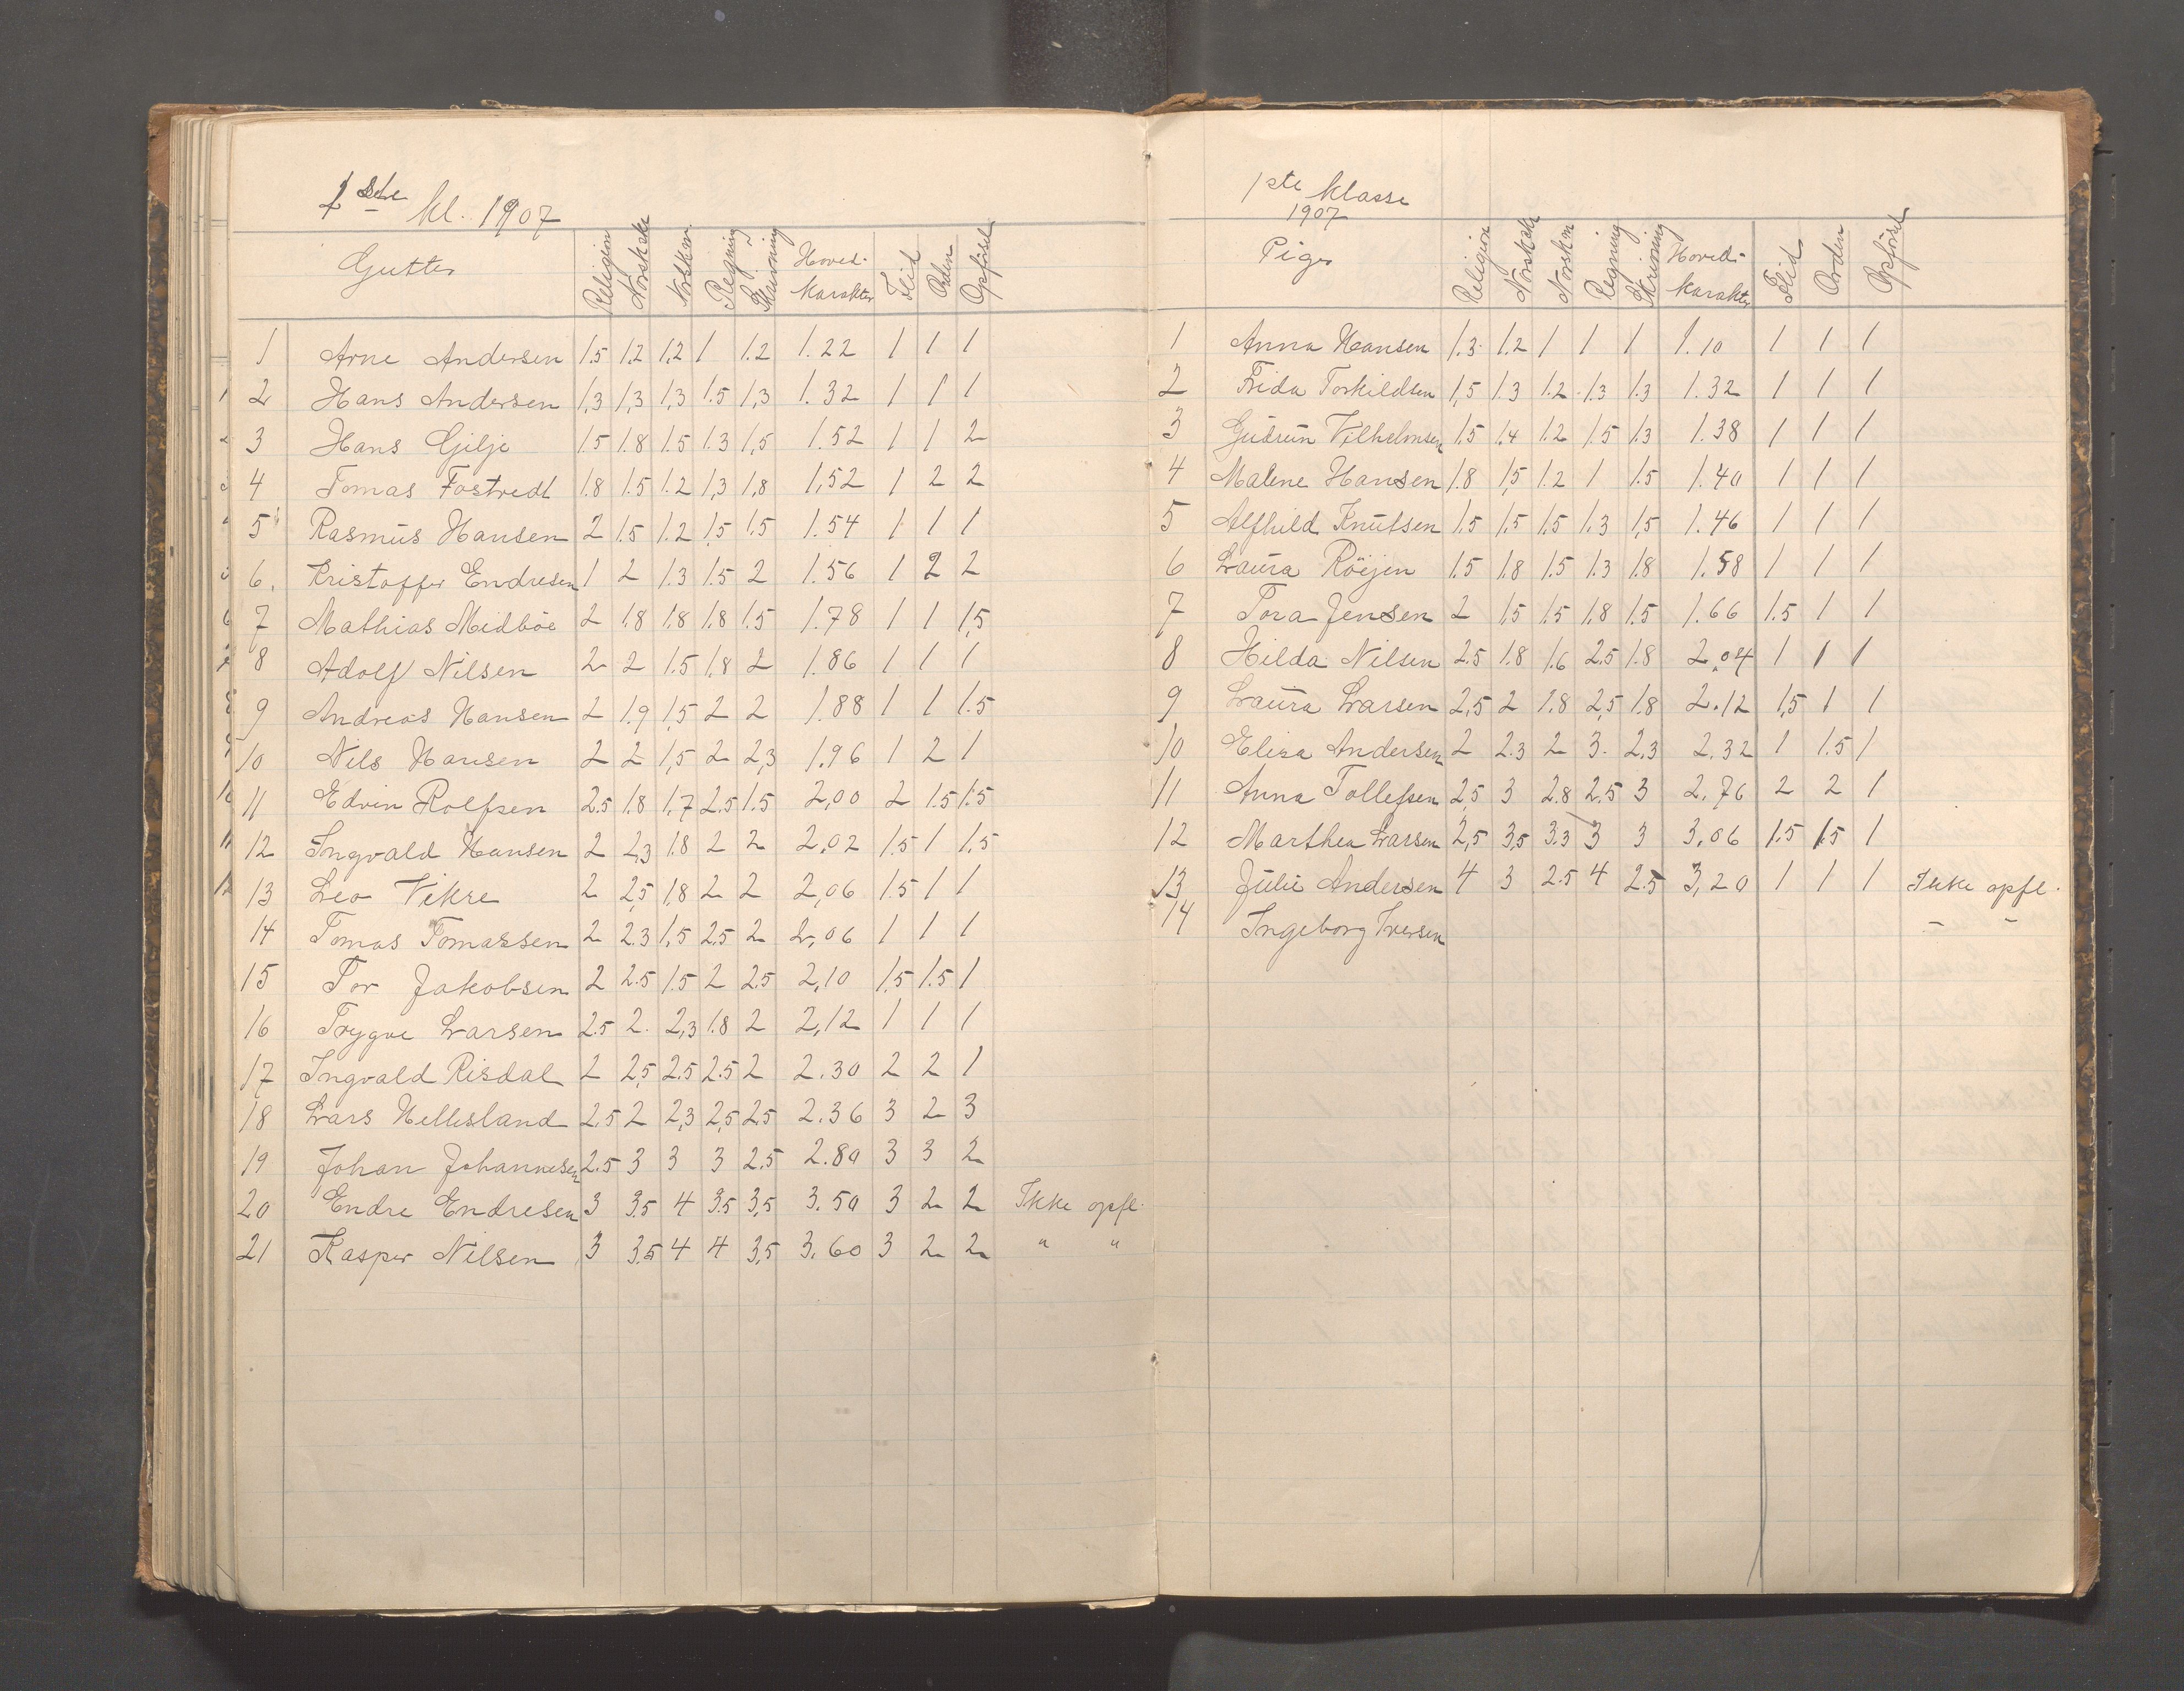 1ste kl. 1907
Gutter Religion Norsk sk. Norsk m. Regning Skrivning Hoved- karakter Flid Orden Opförsel
1 Arne Andersen 1.5 1,2 1,2 1 1.2 1.22 1 1 1
2 Hans Andersen 1,3 1,3 1,3 1.5 1,3 1.32 1 1 1
3 Hans Gilje 1.5 1.8 1.5 1.3 1,5 1.52 1 1 2
4 Tomas Fostvedt 1.8 1.5 1.2 1,3 1,8 1,52 1 2 2
5 Rasmus Hansen 2 1.5 1.2 1,5 1.5 1.54 1 1 1
6. Kristoffer Endresen 1 2 1.3 1.5 2 1.56 1 2 2
7 Mathias Midböe 2 1.8 1.8 1.8 1.5 1.78 1 1 1,5
8 Adolf Nilsen 2 2 1.5 1.8 2 1.86 1 1 1
9 Andreas Hansen 2 1.9 1,5 2 2 1.88 1 1 1.5
10 Nils Hansen 2 2 1,5 2 2,3 1.96 1 2 1
11 Edvin Rolfsen 2.5 1.8 1.7 2.5 1.5 2,00 2 1.5 1.5
12 Ingvald Hansen 2 2,3 1.8 2 2 2,02 1.5 1 1,5
13 Leo Vikre 2 2,5 1,8 2 2 2,06 1.5 1 1
14 Tomas Tomassen 2 2.3 1,5 2.5 2 2,06 1 1 1
15 Tor Jakobsen 2 2.5 1.5 2 2.5 2,10 1,5 1.5 1
16 Trygve Larsen 2.5 2. 2,3 1.8 2 2,12 1 1 1
17 Ingvald Risdal 2 2,5 2.5 2.5 2 2.30 2 2 1
18 Lars Hellesland 2.5 2 2,3 2,5 2.5 2.36 3 2 3
19 Johan Johannesen 2.5 3 3 3 2.5 2.80 3 3 2
20 Endre Endresen 3 3.5 4 3.5 3,5 3.50 3 2 2 Ikke opfl.
21 Kasper Nilsen 3 3.5 4 4 3,5 3.60 3 2 2 " "
1ste klasse
1907
Piger Religion Norsk sk. Norsk m. Regning Skrivning Hoved- karakter Flid Orden Opförsel
1 Anna Hansen 1.3. 1.2 1 1 1 1.10 1 1 1
2 Frida Torkildsen 1,5 1.3 1.2 1.3 1.3 1.32 1 1 1
3 Gudrun Vilhelmsen 1.5 1.4 1.2 1.5 1.3 1.38 1 1 1
4 Malene Hansen 1.8 1,5 1.2 1 1.5 1.40 1 1 1
5 Alfhild Knutsen 1.5 1.5 1.5 1.3 1,5 1.46 1 1 1
6 Laura Röijen 1.5 1.8 1.5 1.3 1.8 1.58 1 1 1
7 Tora Jensen 2 1.5 1.5 1.8 1.5 1.66 1.5 1 1
8 Hilda Nilsen 2.5 1.8 1.6 2.5 1.8 2,04 1 1 1
9 Laura Larsen 2,5 2 1.8 2,5 1.8 2.12 1,5 1 1
10 Elisa Andersen 2 2.3 2 3. 2,3 2.32 1 1.5 1
11 Anna Tollefsen 2,5 3 2.8 2.5 3 2.76 2 2 1
12 Marthea Larsen 2,5 3,5 3.3 3 3 3,06 1.5 1.5 1
13 Julie Andersen 4 3 2.5 4 2.5 3,20 1 1 1 Ikke opfl.
14 Ingeborg Iversen – –